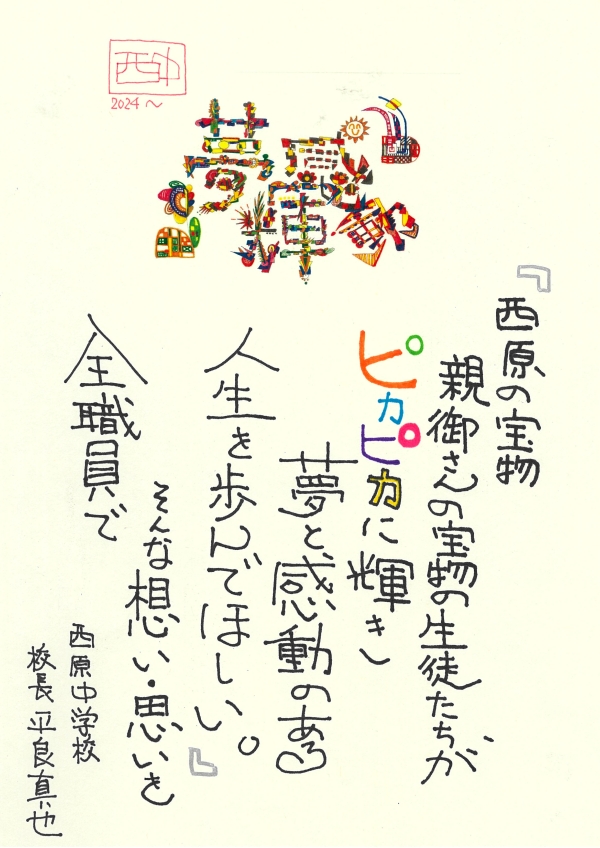 西中
2024〜
夢 感動
輝
『西原の宝物
親御さんの宝物の生徒たちが
ピカピカに輝き
夢と感動のある
人生を歩んでほしい。』
そんな想い・思いを
全職員で
西原中学校
校長 平良真也